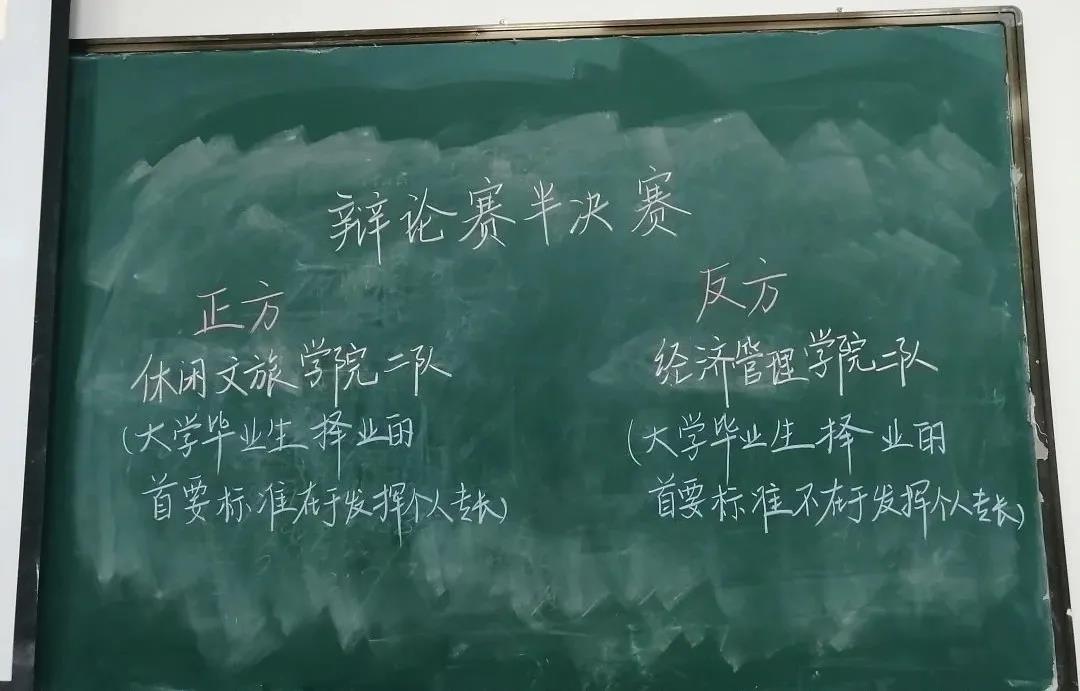 辩论赛半决赛
正方
休闲文旅学院二队
(大学毕业生择业的
首要标准在于发挥个人专长)
反方
经济管理学院二队
(大学毕业生择业的
首要标准不在于发挥个人专长)